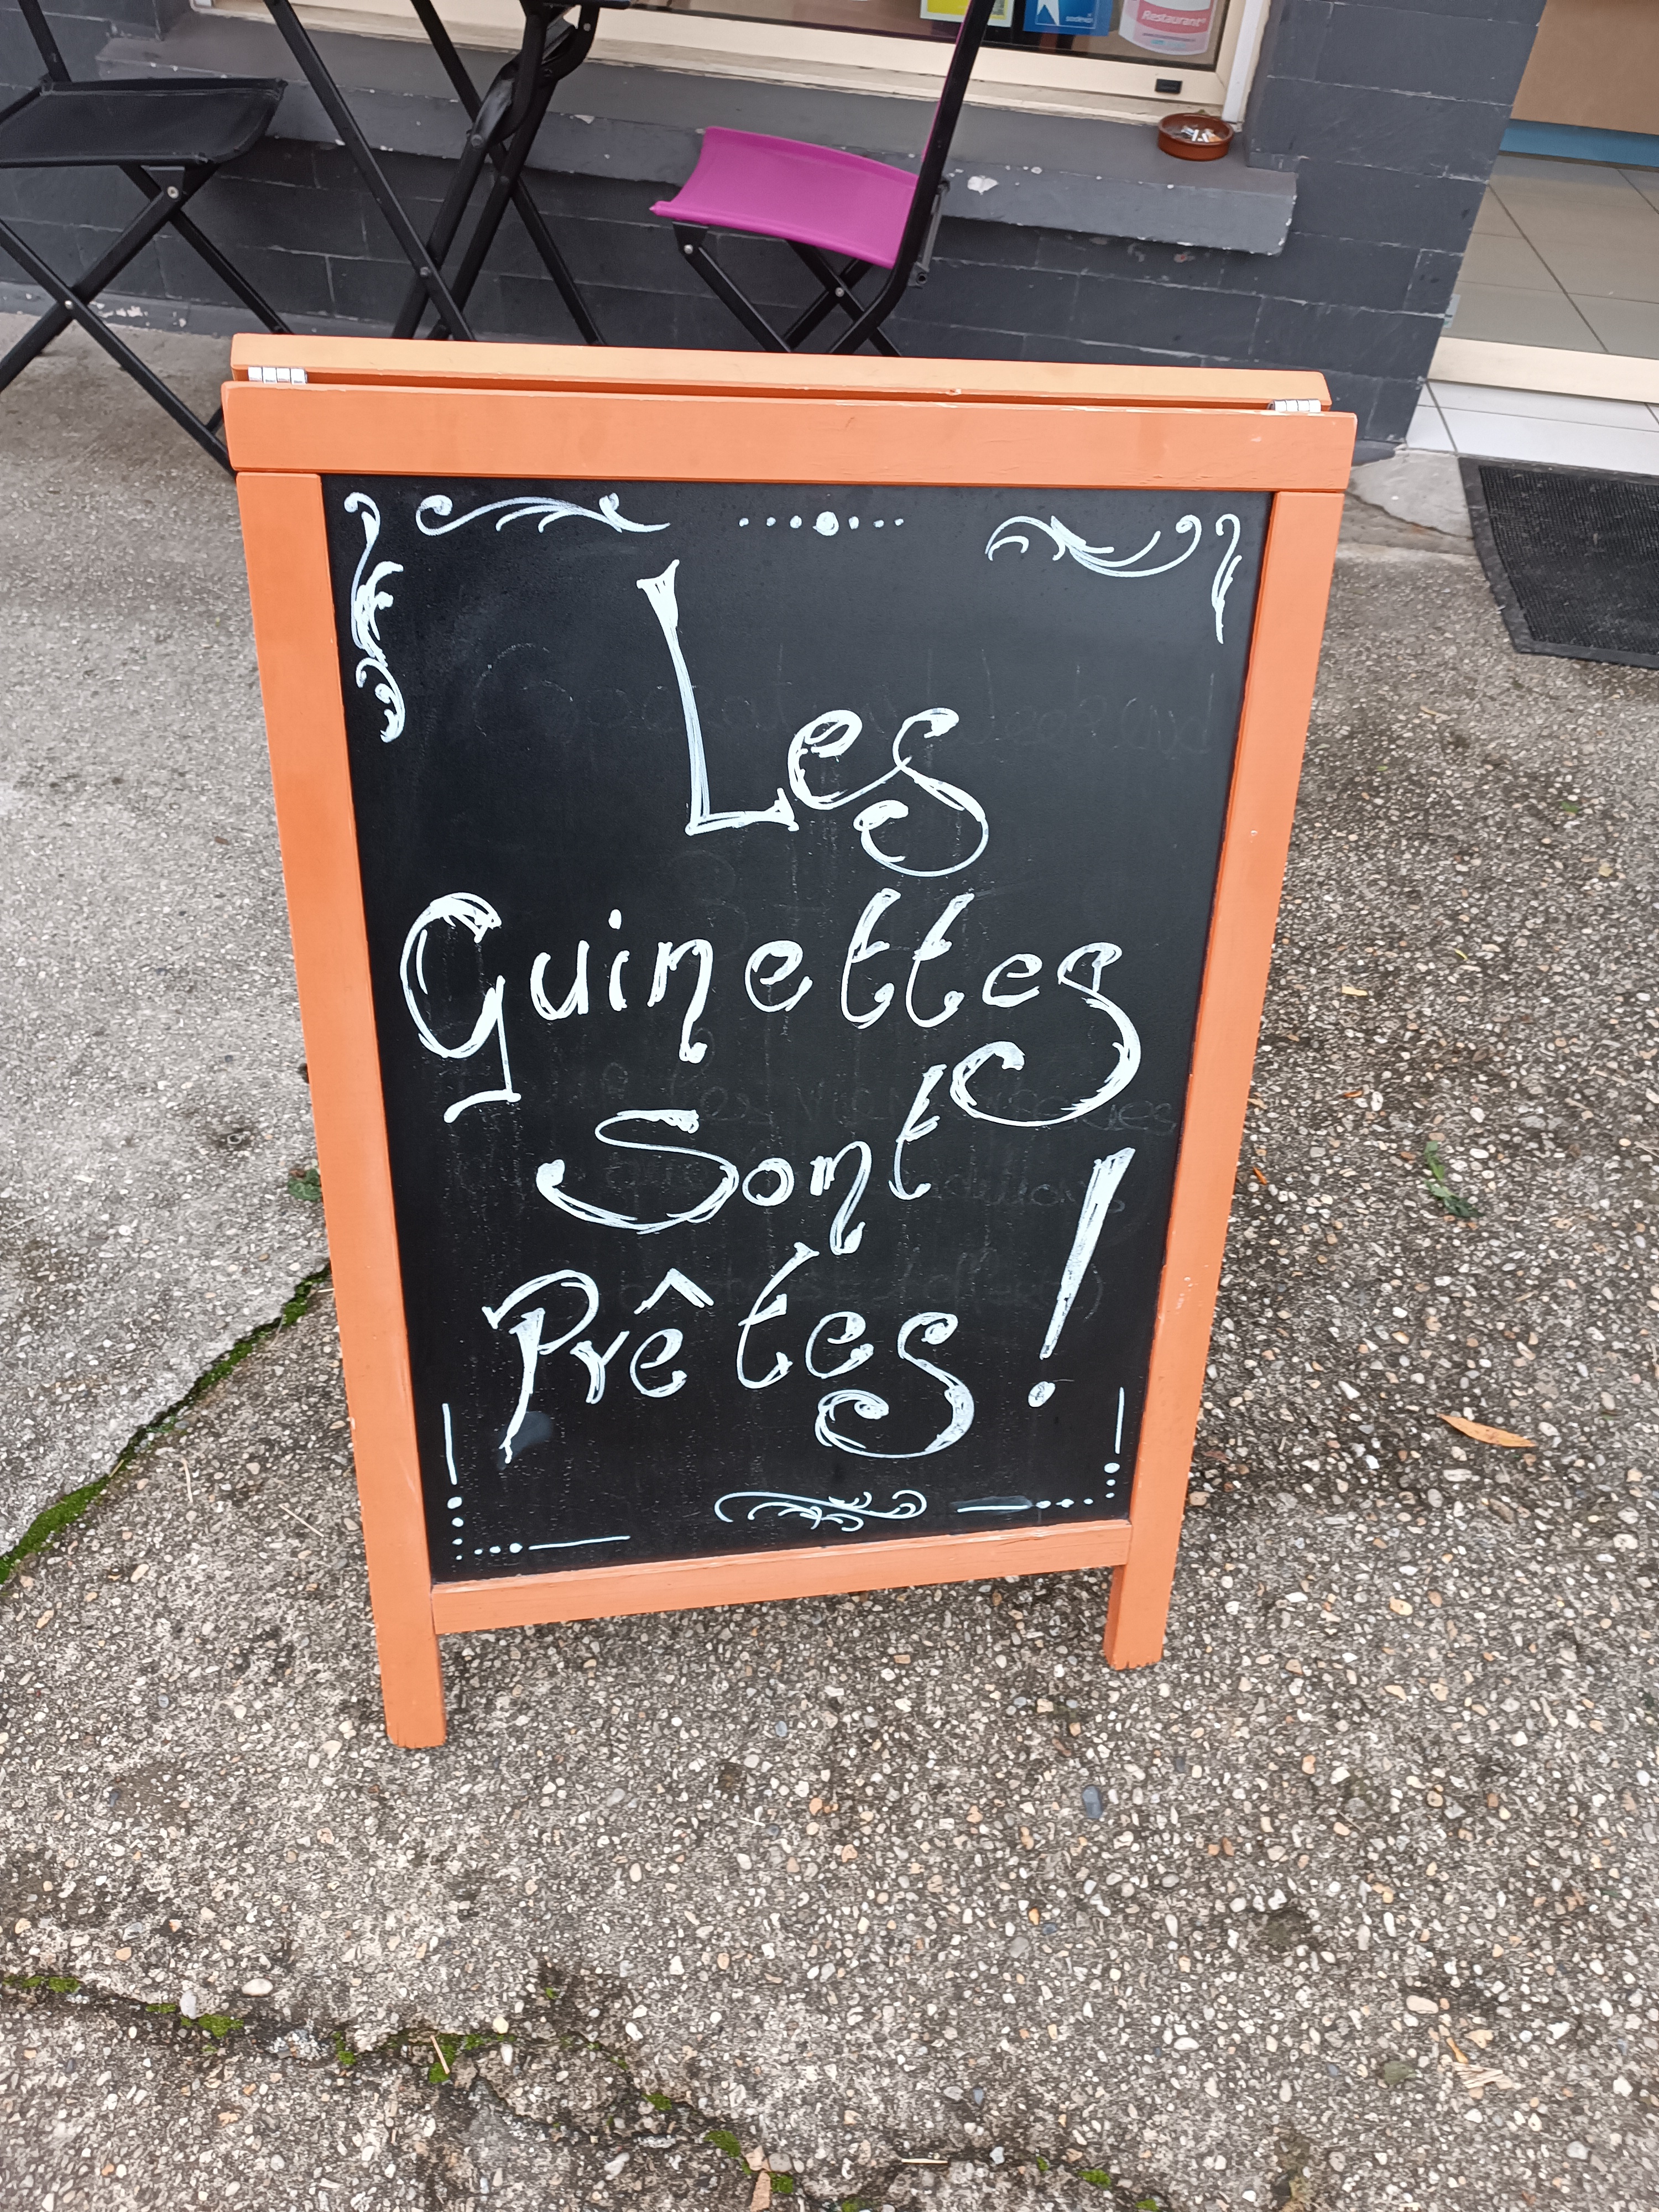 Restaurant
sodexo
Les
Guinettes
Sont
Prêtes !